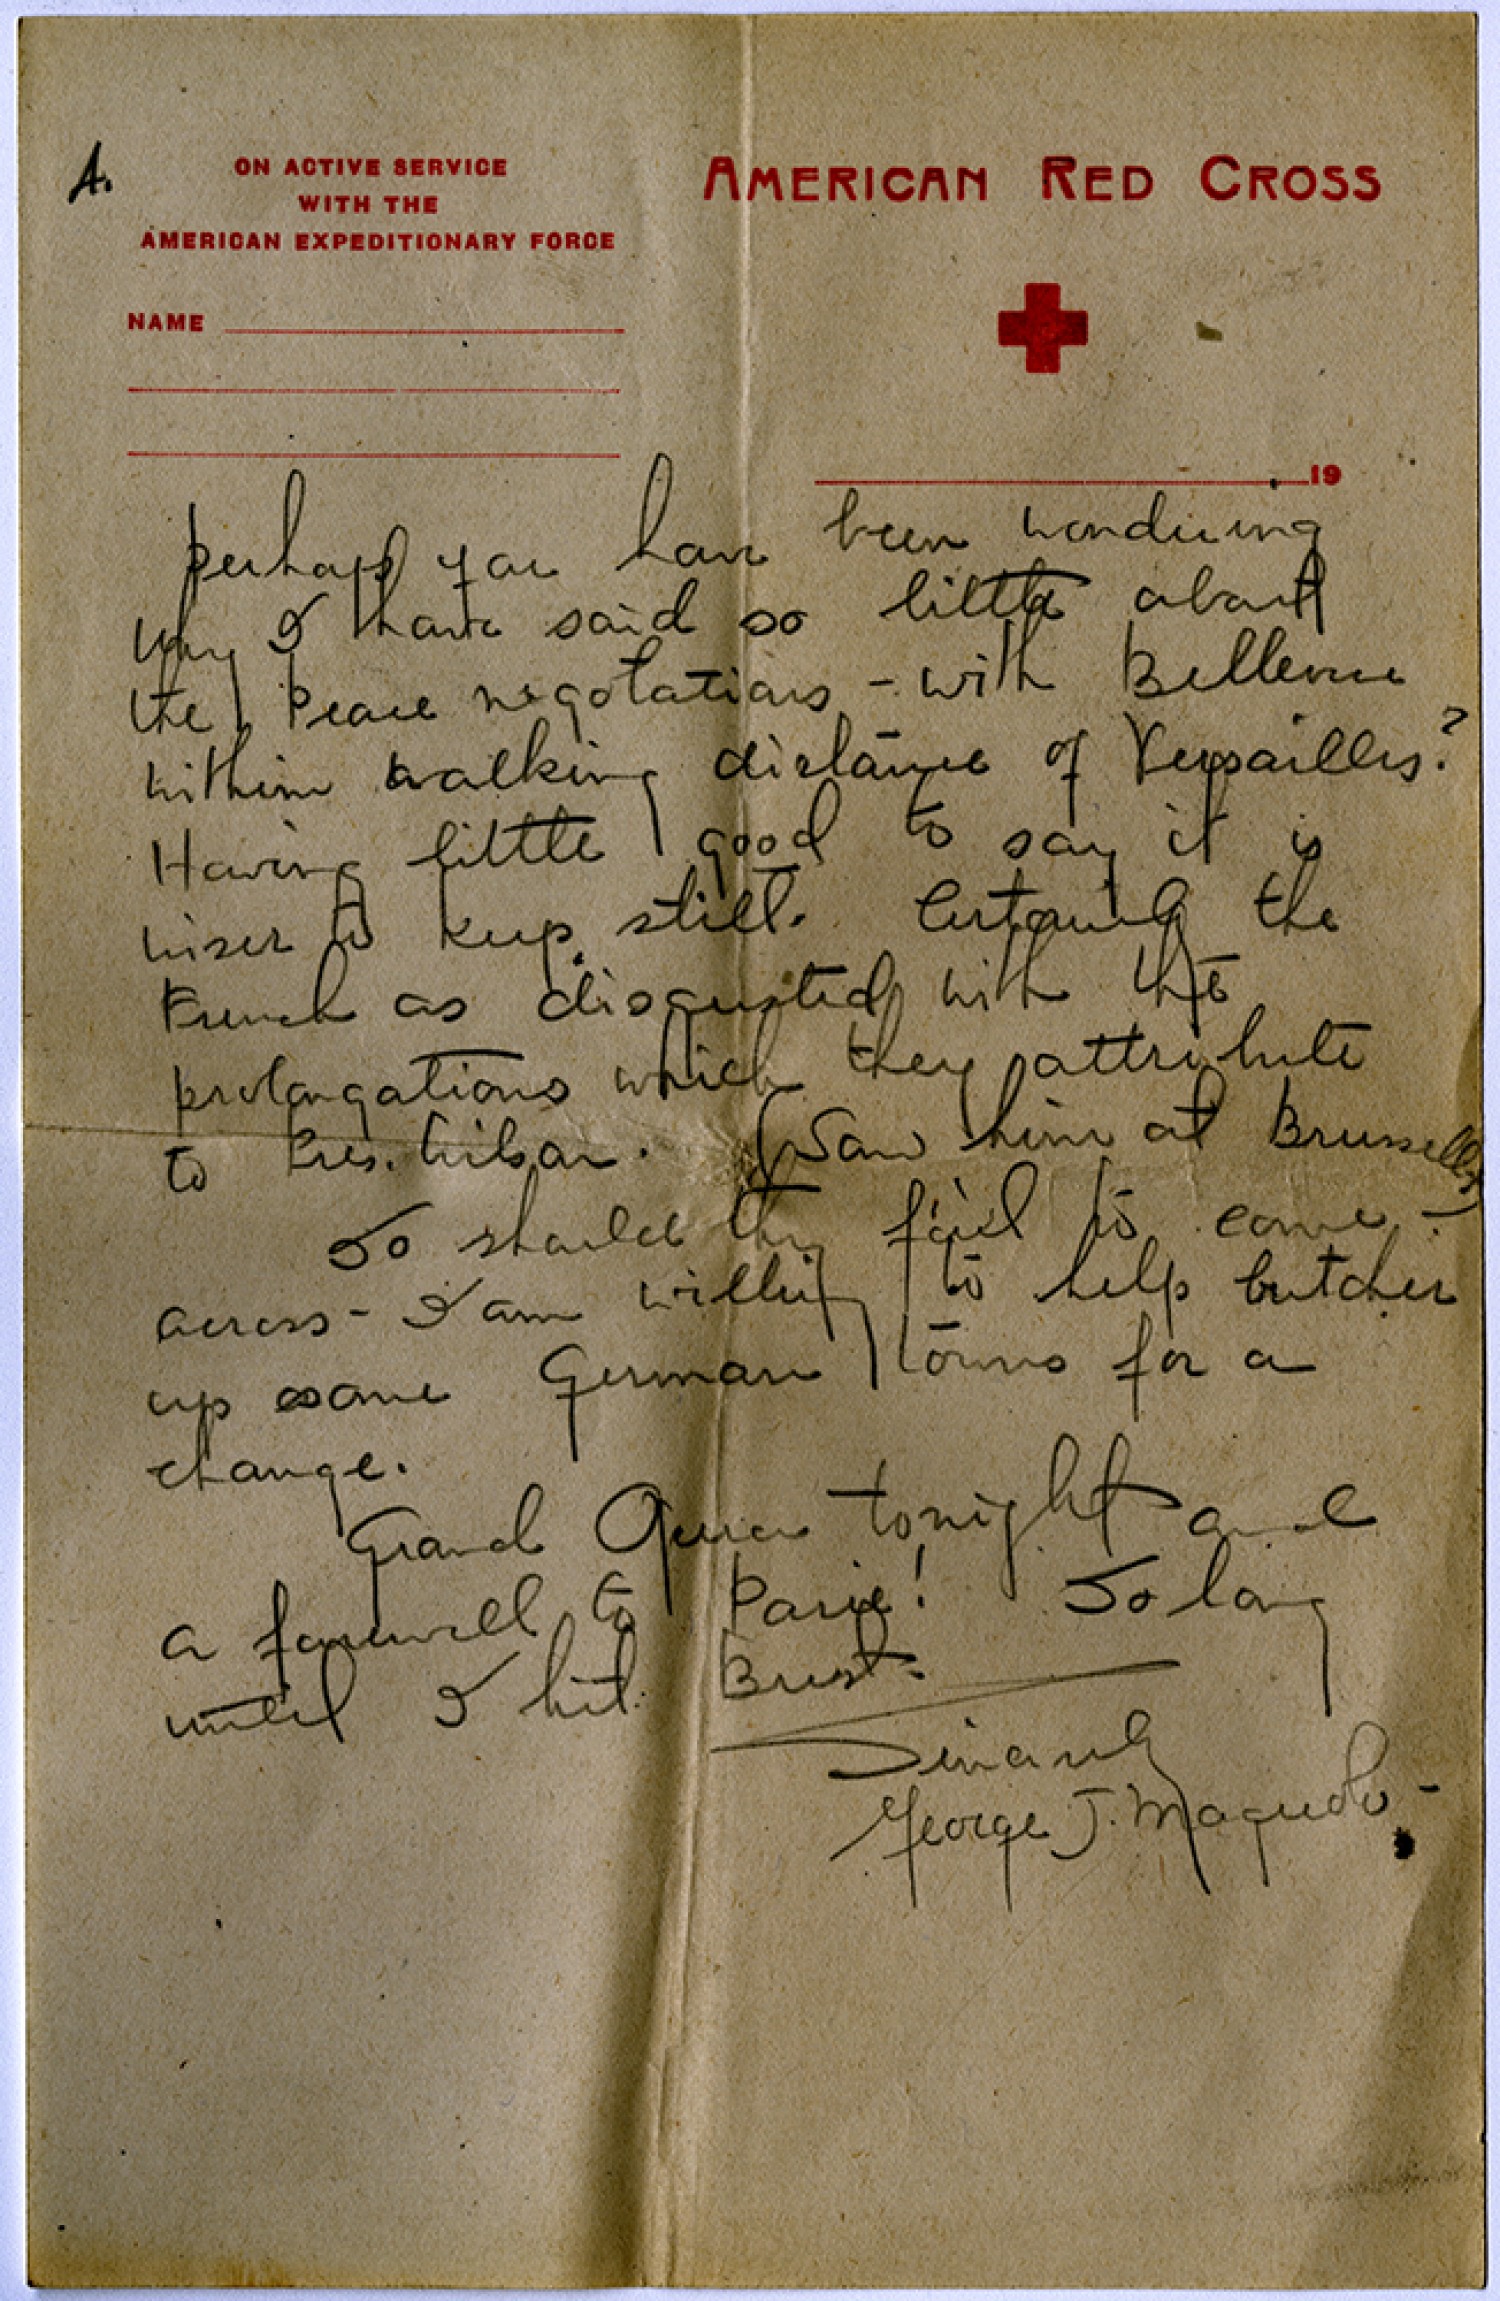 A.
ON ACTIVE SERVICE
WITH THE
AMERICAN EXPEDITIONARY FORCE
AMERICAN RED CROSS
NAME
19
Perhaps you have been wondering
why I have said so little about
the Peace negotations - with Bellevue
within walking distance of Versailles?
Having little good to say it is
wiser to keep still. Certainly the
French as disgusted with the
prolongations which they attribute
to Pres. Wilson. (Saw him at Brussells)
So should they fail to come -
across - I am willing to help butcher
up some German towns for a
change.
Grand Opera tonight and
a farewell to Paris! So long
until I hit Brest.
Sincerely
George J.